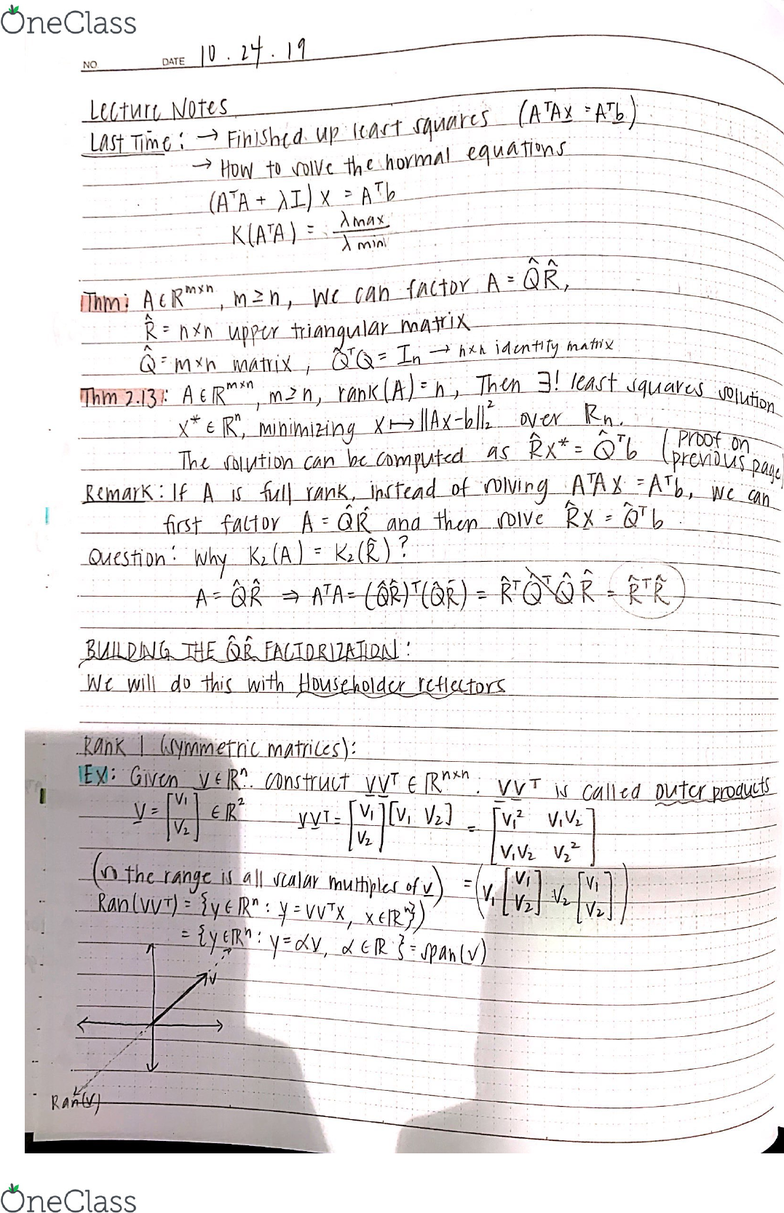 OneClass
NO DATE 10.24.19
Lecture Notes
Last Time: → Finished up least squares (AᵀAx = Aᵀb)
→ How to solve the normal equations
(AᵀA + λI) x = Aᵀb
K(AᵀA) = λmax / λmin
Thm: A∈ℝᵐˣⁿ, m≥n, we can factor A = Q̂R̂,
R̂ = n×n upper triangular matrix
Q̂ = m×n matrix, Q̂ᵀQ̂ = Iₙ → n×n identity matrix
Thm 2.13: A∈ℝᵐˣⁿ, m≥n, rank(A)=n, Then ∃! least squares solution
x* ∈ ℝⁿ, minimizing x↦||Ax-b||₂² over ℝₙ.
The solution can be computed as R̂x* = Q̂ᵀb (Proof on previous page)
Remark: If A is full rank, instead of solving AᵀAx = Aᵀb, we can
first factor A = Q̂R̂ and then solve R̂x = Q̂ᵀb
Question: Why K₂(A) = K₂(R̂)?
A = Q̂R̂ ⇒ AᵀA = (Q̂R̂)ᵀ(Q̂R̂) = R̂ᵀQ̂ᵀQ̂R̂ = R̂ᵀR̂
BUILDING THE Q̂R̂ FACTORIZATION:
We will do this with Householder reflectors
Rank 1 (symmetric matrices):
Ex: Given v∈ℝⁿ construct vvᵀ ∈ ℝⁿˣⁿ. vvᵀ is called outer products
v = [v₁ v₂] ∈ ℝ² vvᵀ = [v₁ v₂][v₁ v₂] = [v₁² v₁v₂ v₁v₂ v₂²]
(the range is all scalar multiples of v) = (v₁ [v₁ v₂] v₂ [v₁ v₂])
Ran(vvᵀ) = {y∈ℝⁿ: y=vvᵀx, x∈ℝⁿ}
= {y∈ℝⁿ: y=αv, α∈ℝ} = span(v)
v
Ran(v)
OneClass